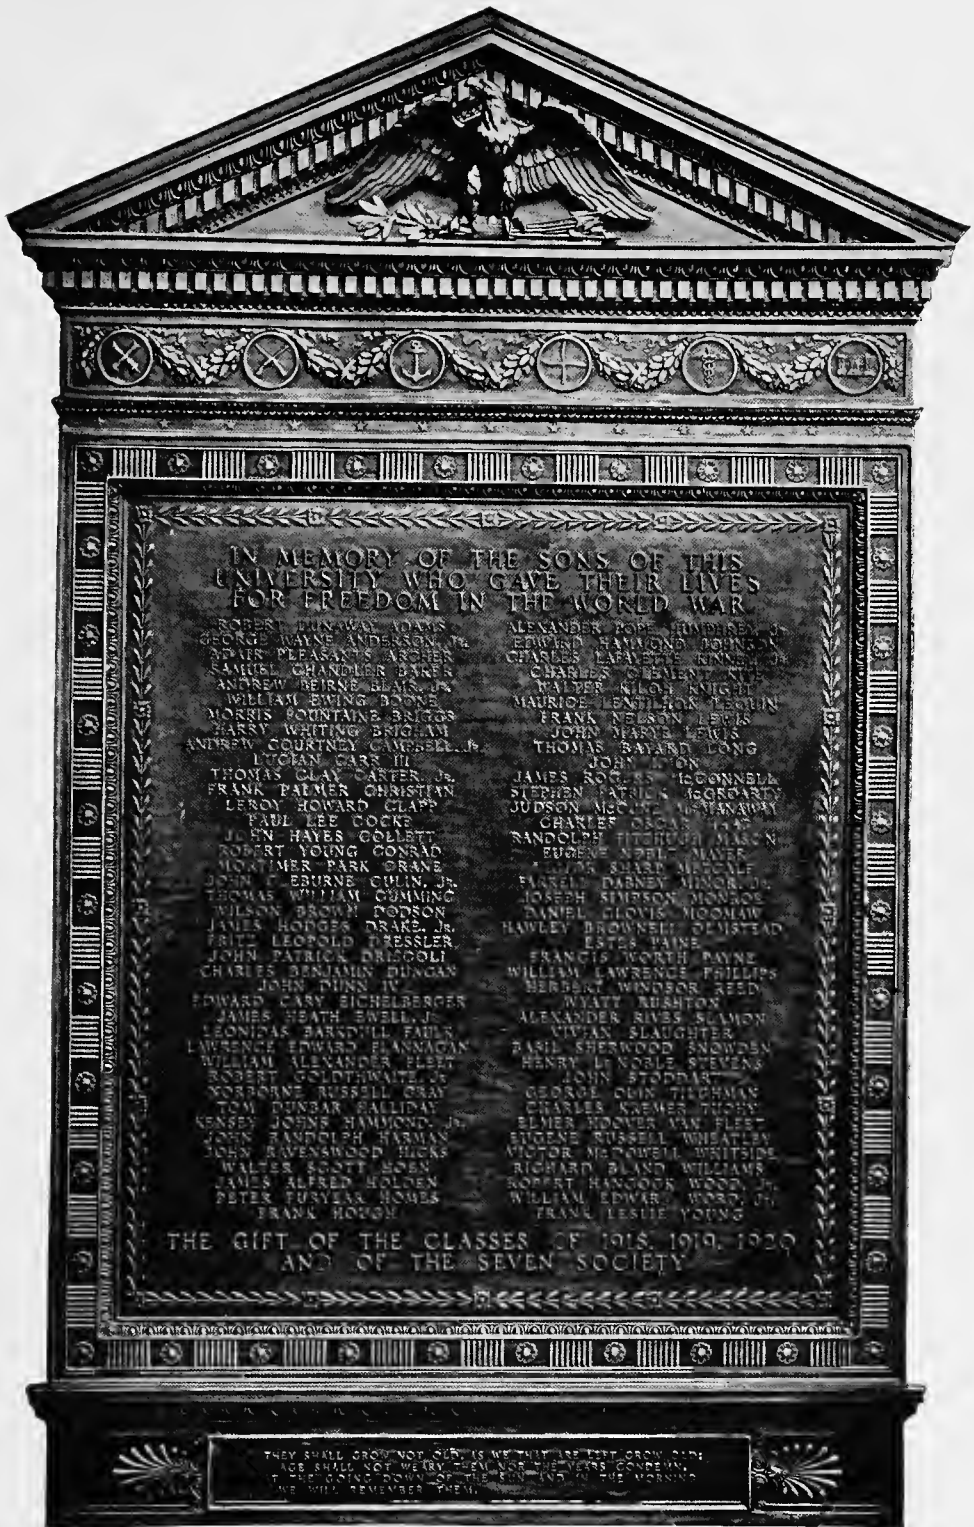 IN MEMORY OF THE SONS OF THIS
UNIVERSITY WHO GAVE THEIR LIVES
FOR FREEDOM IN THE WORLD WAR
ROBERT DUNAWAY ADAMS
GEORGE WAYNE ANDERSON, Jr.
ADAIR PLEASANTS ARCHER
SAMUEL CHANDLER BAKER
ANDREW BEIRNE BLAIR, Jr.
WILLIAM EWING BOONE
MORRIS FOUNTAINE BRIGGS
HARRY WHITING BRIGHAM
ANDREW COURTNEY CAMPBELL, Jr.
LUCIAN CARR III
THOMAS CLAY CARTER, Jr.
FRANK PALMER CHRISTIAN
LEROY HOWARD CLAPP
PAUL LEE COCKE
JOHN HAYES COLLETT
ROBERT YOUNG CONRAD
MORTIMER PARK CRANE
CULIN, Jr.
THOMAS WILLIAM CUMMING
WILSON BROWN DODSON
JAMES HODGES DRAKE, Jr.
FRITZ LEOPOLD DRESSLER
JOHN PATRICK DRISCOLL
CHARLES BENJAMIN DUNCAN
JOHN DUNN IV
EDWARD CARY EICHELBERGER
JAMES HEATH EWELL, Jr.
LEONIDAS FAULK
LAWRENCE EDWARD FLANNAGAN
WILLIAM ALEXANDER FLEET
ROBERT
OSBORNE GRAY
TOM DUNBAR HALLIDAY
JOHNS HAMMOND, Jr.
JOHN RANDOLPH HARMAN
JOHN RAVENSWOOD HICKS
WALTER SCOTT HOEN
JAMES ALFRED HOLDEN
PETER PURYEAR HOMES
FRANK HOUGH
ALEXANDER POPE HUMPHREY, Jr.
EDWARD HAMMOND JOHNSON
CHARLES LAFAYETTE KINNEY, Jr.
CHARLES CLEMENT KITE
WALTER KNIGHT
MAURICE LENTILHON LEQUIN
FRANK NELSON LEWIS
JOHN MARYE LEWIS
THOMAS BAYARD LONG
JOHN LYON
JAMES ROGERS McCONNELL
STEPHEN PATRICK McGROARTY
JUDSON McMANAWAY
CHARLES OSCAR
RANDOLPH MASON
EUGENE MAYER
METCALF
DABNEY MINOR, Jr.
JOSEPH SIMPSON MONROE
DANIEL CLOVIS MOOMAW
HAWLEY BROWNELL OLMSTEAD
ESTES PAINE
FRANCIS WORTH PAYNE
WILLIAM LAWRENCE PHILLIPS
HERBERT WINDSOR REED
WYATT RUSHTON
ALEXANDER RIVES SEAMON
VIVIAN SLAUGHTER
BASIL SHERWOOD SNOWDEN
HENRY
JOHN STODDART
GEORGE
CHARLES KREMER TUOHY
ELMER HOOVER VAN FLEET
EUGENE RUSSELL WHEATLEY
VICTOR McDOWELL WHITSIDE
RICHARD BLAND WILLIAMS
ROBERT HANCOCK WOOD, Jr.
WILLIAM EDWARD WORD, Jr.
FRANK LESLIE YOUNG
THE GIFT OF THE CLASSES OF 1918, 1919, 1920
AND OF THE SEVEN SOCIETY
THEY SHALL GROW NOT OLD, AS WE THAT ARE LEFT GROW OLD;
AGE SHALL NOT WEARY THEM NOR THE YEARS CONDEMN,
AT THE GOING DOWN OF THE SUN AND IN THE MORNING
WE WILL REMEMBER THEM.